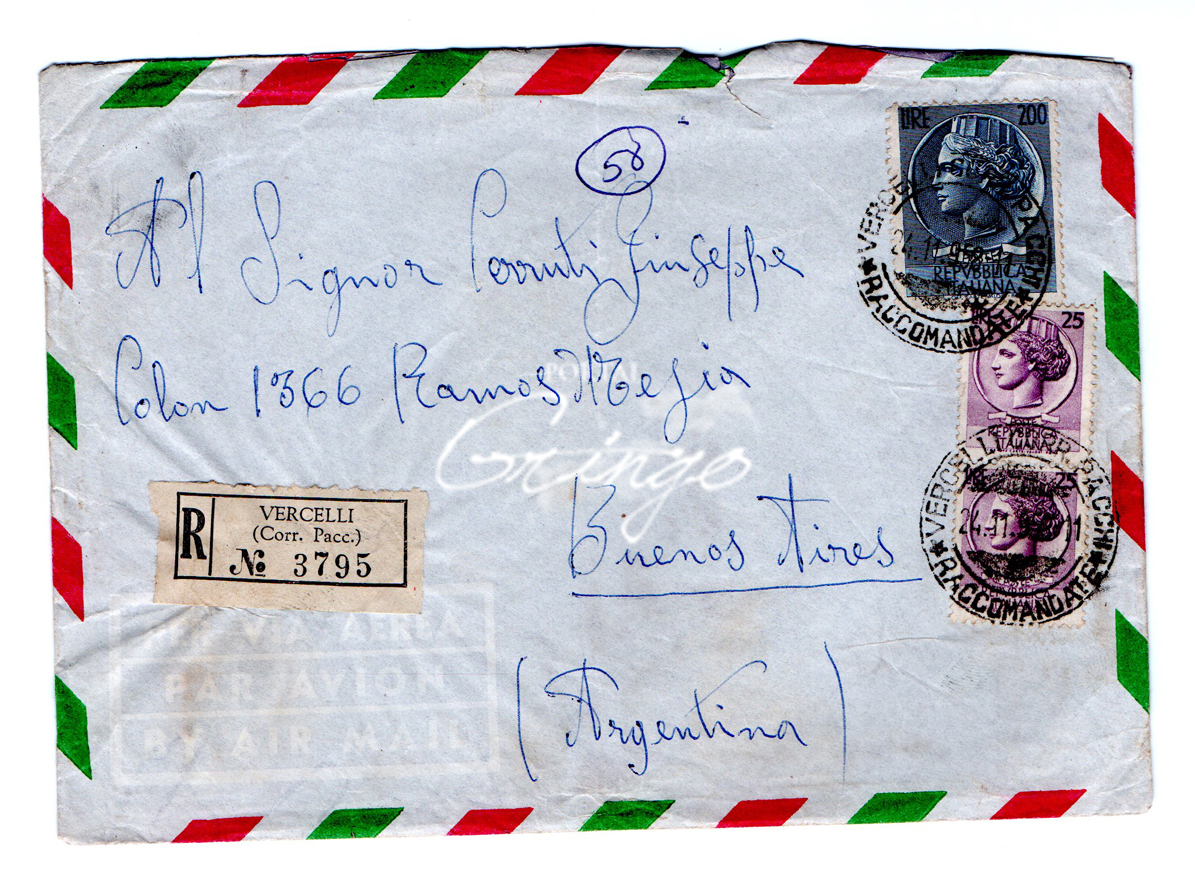 LIRE 200
REPVBBLICA
ITALIANA
58
Al Signor Cerruti Giuseppe
Colon 1366 Ramos Mejia
Buenos Aires
(Argentina)
25
REPVBBLICA
ITALIANA
25
VERCELLI
RACCOMANDATE
24.11
VERCELLI
RACCOMANDATE
24.11
R
VERCELLI
(Corr. Pacc.)
№ 3795
VIA AEREA
PAR AVION
BY AIR MAIL
PORTAL
Gringo